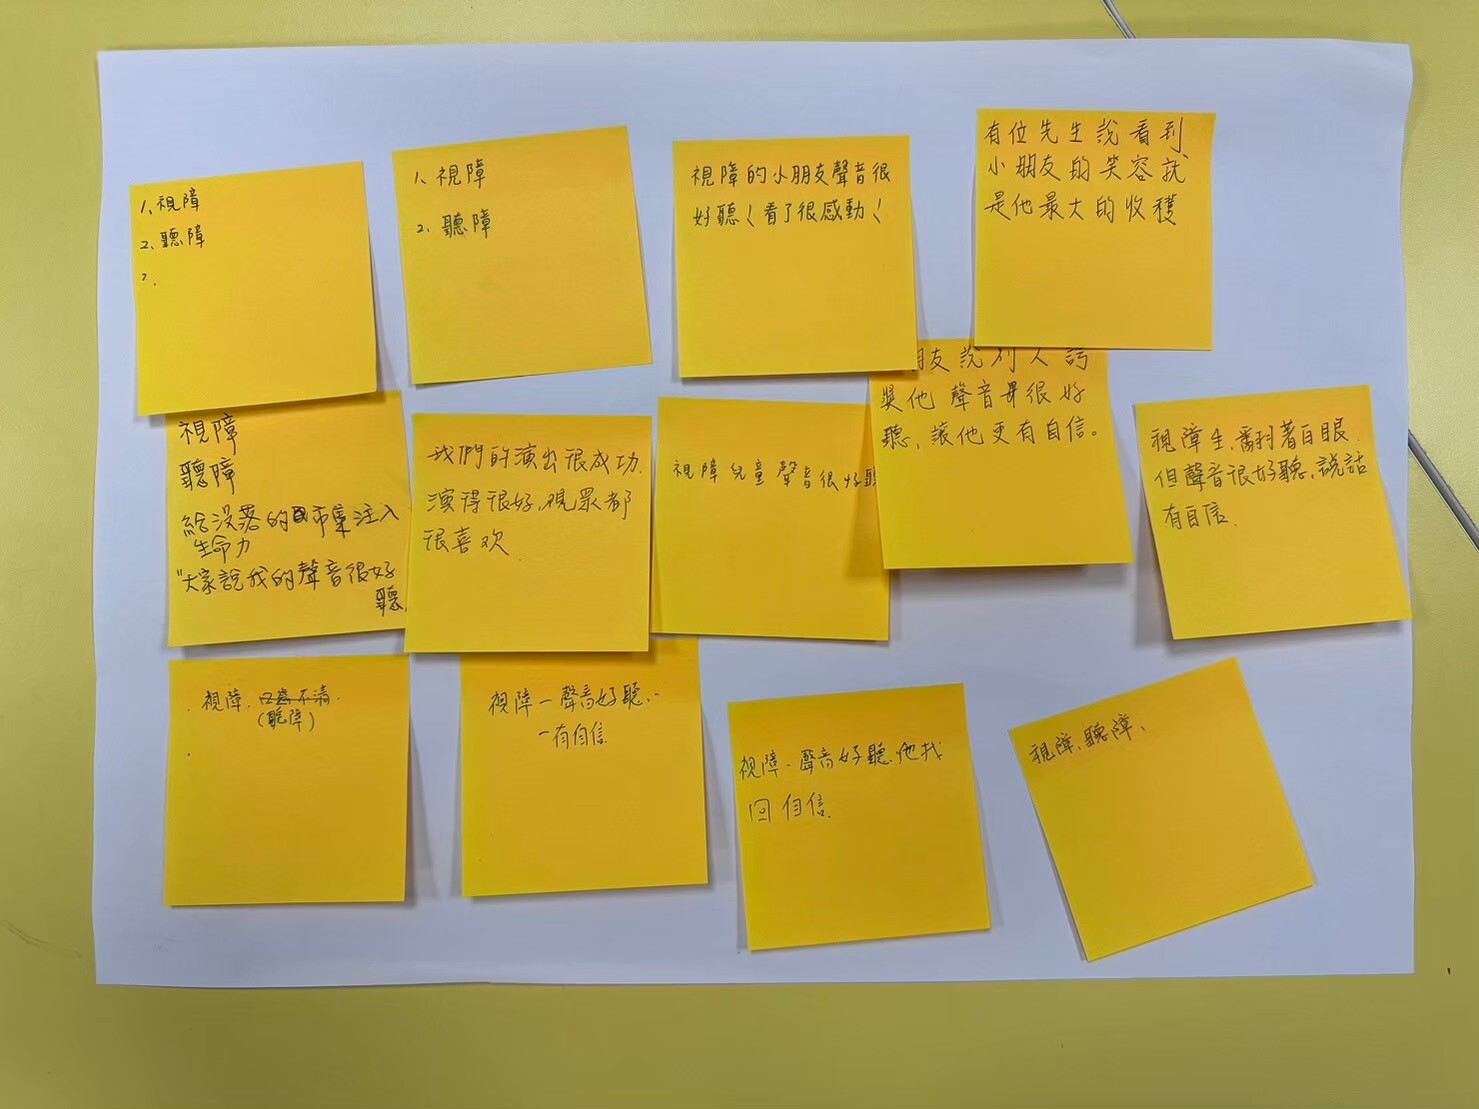 1、視障
2、聽障
1、視障
2、聽障
視障的小朋友聲音很
好聽！看了很感動！
有位先生說看到
小朋友的笑容就
是他最大的收穫
視障
聽障
給没落的市集注入
生命力
"大家說我的聲音很好
聽
我們的演出很成功.
演得很好,觀眾都
很喜欢
視障兒童聲音很好聽
朋友說別人誇
獎他聲音很好
聽,讓他更有自信。
視障生,翻着白眼.
但聲音很好聽,說話
有自信.
視障. 口齒不清.
(聽障)
視障-聲音好聽、
-有自信
視障-聲音好聽.他找
回自信.
視障、聽障、